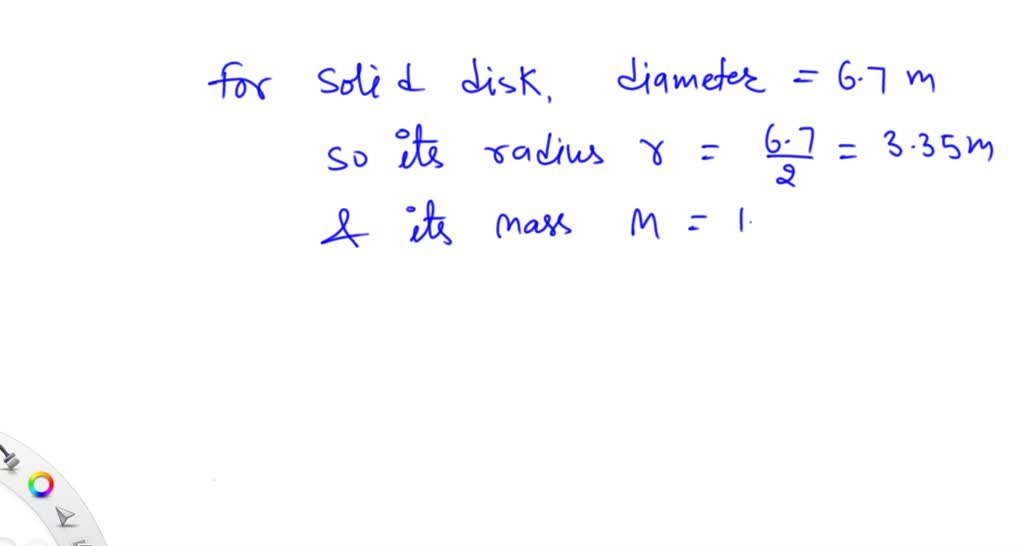 for solid disk, diameter = 6.7 m
so its radius r = 6.7/2 = 3.35m
& its mass M = 1.